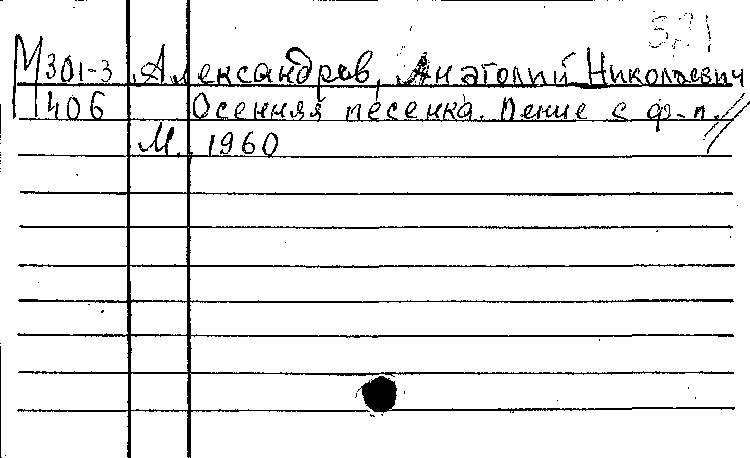 М301-3 Александров, Анатолий Николаевич
406 Осенняя песенка. Пение с ф-п.//
М., 1960